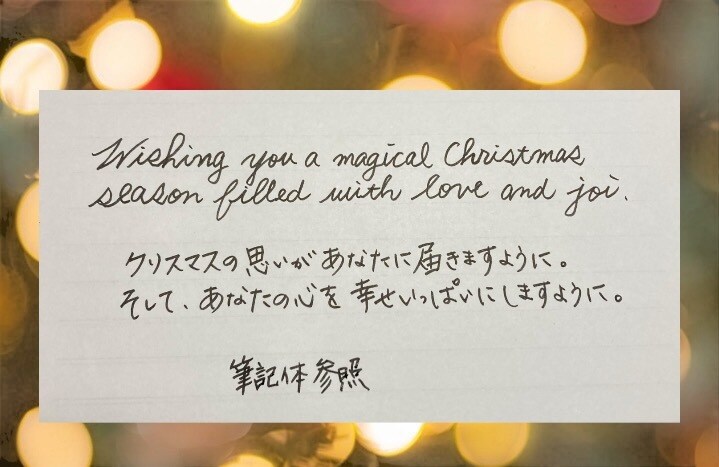 Wishing you a magical Christmas
season filled with love and joi.
クリスマスの思いがあなたに届きますように。
そして、あなたの心を幸せいっぱいにしますように。
筆記体参照